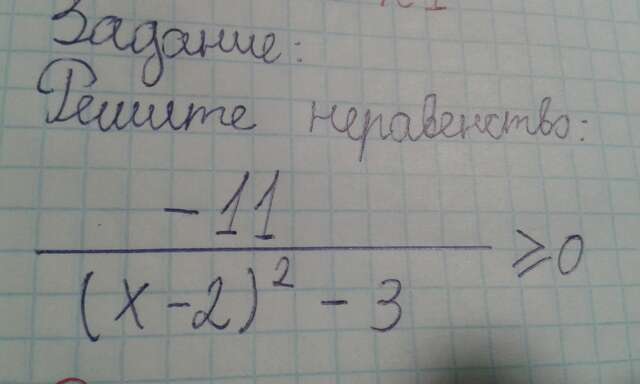 Задание:
Решите неравенство:
-11
(x-2)² - 3
≥0